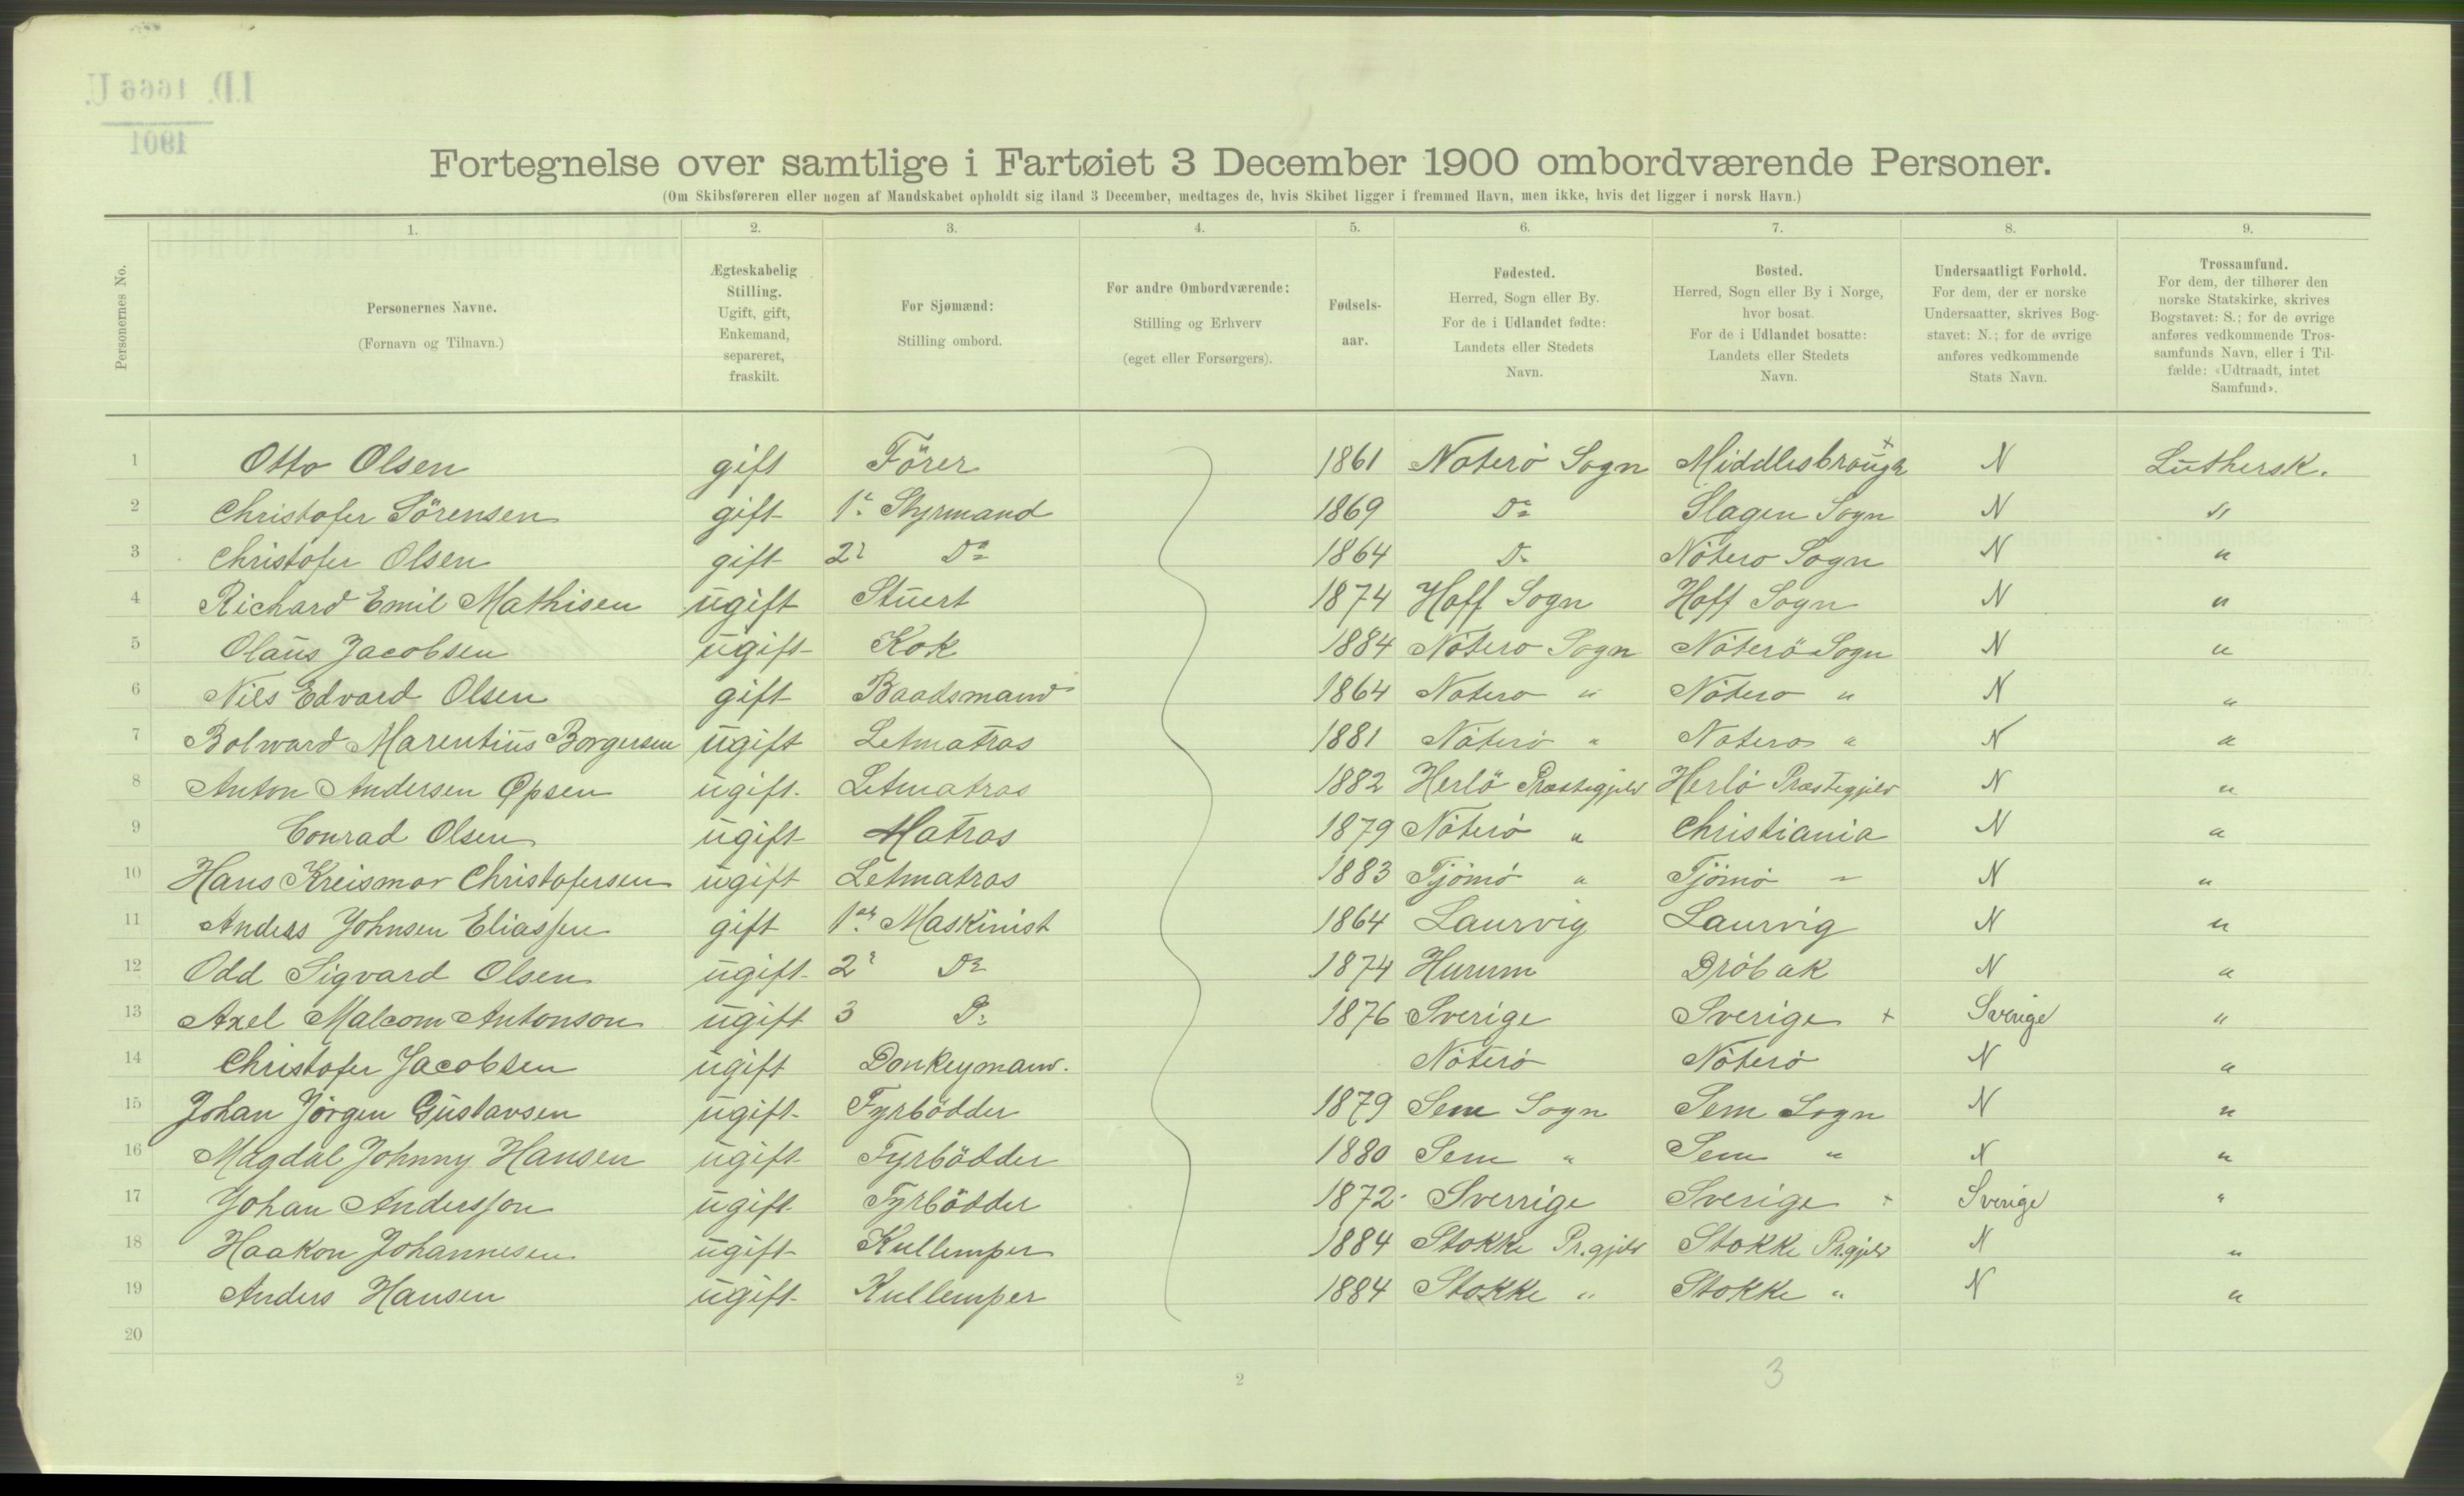 I.D. 1666 U.
1901
Fortegnelse over samtlige i Fartøiet 3 December 1900 ombordværende Personer.
(Om Skibsføreren eller nogen af Mandskabet opholdt sig iland 3 December, medtages de, hvis Skibet ligger i fremmed Havn, men ikke, hvis det ligger i norsk Havn.)
Personernes No.
1. 2. 3. 4. 5. 6. 7. 8. 9.
Personernes Navne.
(Fornavn og Tilnavn.)
Ægteskabelig
Stilling.
Ugift, gift,
Enkemand,
separeret,
fraskilt.
For Sjømænd:
Stilling ombord.
For andre Ombordværende:
Stilling og Erhverv
(eget eller Forsørgers).
Fødsels-
aar.
Fødested.
Herred, Sogn eller By.
For de i Udlandet fødte:
Landets eller Stedets
Navn.
Bosted.
Herred, Sogn eller By i Norge,
hvor bosat.
For de i Udlandet bosatte:
Landets eller Stedets
Navn.
Undersaatligt Forhold.
For dem, der er norske
Undersaatter, skrives Bog-
stavet: N.; for de øvrige
anføres vedkommende
Stats Navn.
Trossamfund.
For dem, der tilhører den
norske Statskirke, skrives
Bogstavet: S.; for de øvrige
anføres vedkommende Tros-
samfunds Navn, eller i Til-
fælde: «Udtraadt, intet
Samfund».
1 Otto Olsen gift Förer 1861 Noterö Sogn Middlesbrough + N Luthersk.
2 Christofer Sörensen gift 1r Styrmand 1869 Do Slagen Sogn N "
3 Christofer Olsen gift 2r Do 1864 Do Nötero Sogn N "
4 Richard Emil Mathisen ugift Stuert 1874 Hoff Sogn Hoff Sogn N "
5 Olaus Jacobsen ugift Kok 1884 Nötero Sogn Nöterö Sogn N "
6 Nils Edvard Olsen gift Baadsmand 1864 Notero " Nötero " N "
7 Bolward Marentius Borgersen ugift Letmatros 1881 Nöterö " Notero " N "
8 Anton Andersen Opsen ugift Letmatros 1882 Herlö Præstegjeld Herlö Præstegjeld N "
9 Conrad Olsen ugift Matros 1879 Nöterö " Christiania N "
10 Hans Kreismar Christofersen ugift Letmatros 1883 Tjömö " Tjömö " N "
11 Anders Johnsen Eliassen gift 1ste Maskinist 1864 Laurvig Laurvig N "
12 Odd Sigvard Olsen ugift 2r Do 1874 Hurum Dröbak N "
13 Axel Malcom Antonson ugift 3 Do 1876 Sverige Sverige + Sverige "
14 Christofer Jacobsen ugift Donkeymand. Nöterö Nöterö N "
15 Johan Jörgen Gustavsen ugift Fyrbödder 1879 Sem Sogn Sem Sogn N "
16 Magdal Johnny Hansen ugift Fyrbödder 1880 Sem " Sem " N "
17 Johan Andersson ugift Fyrbödder 1872 Sverrige Sverige + Sverige "
18 Haakon Johannesen ugift Kullemper 1884 Stokke Pr.gjeld Stokke Pr.gjeld N "
19 Anders Hansen ugift Kullemper 1884 Stokke " Stokke " N "
20
2
3